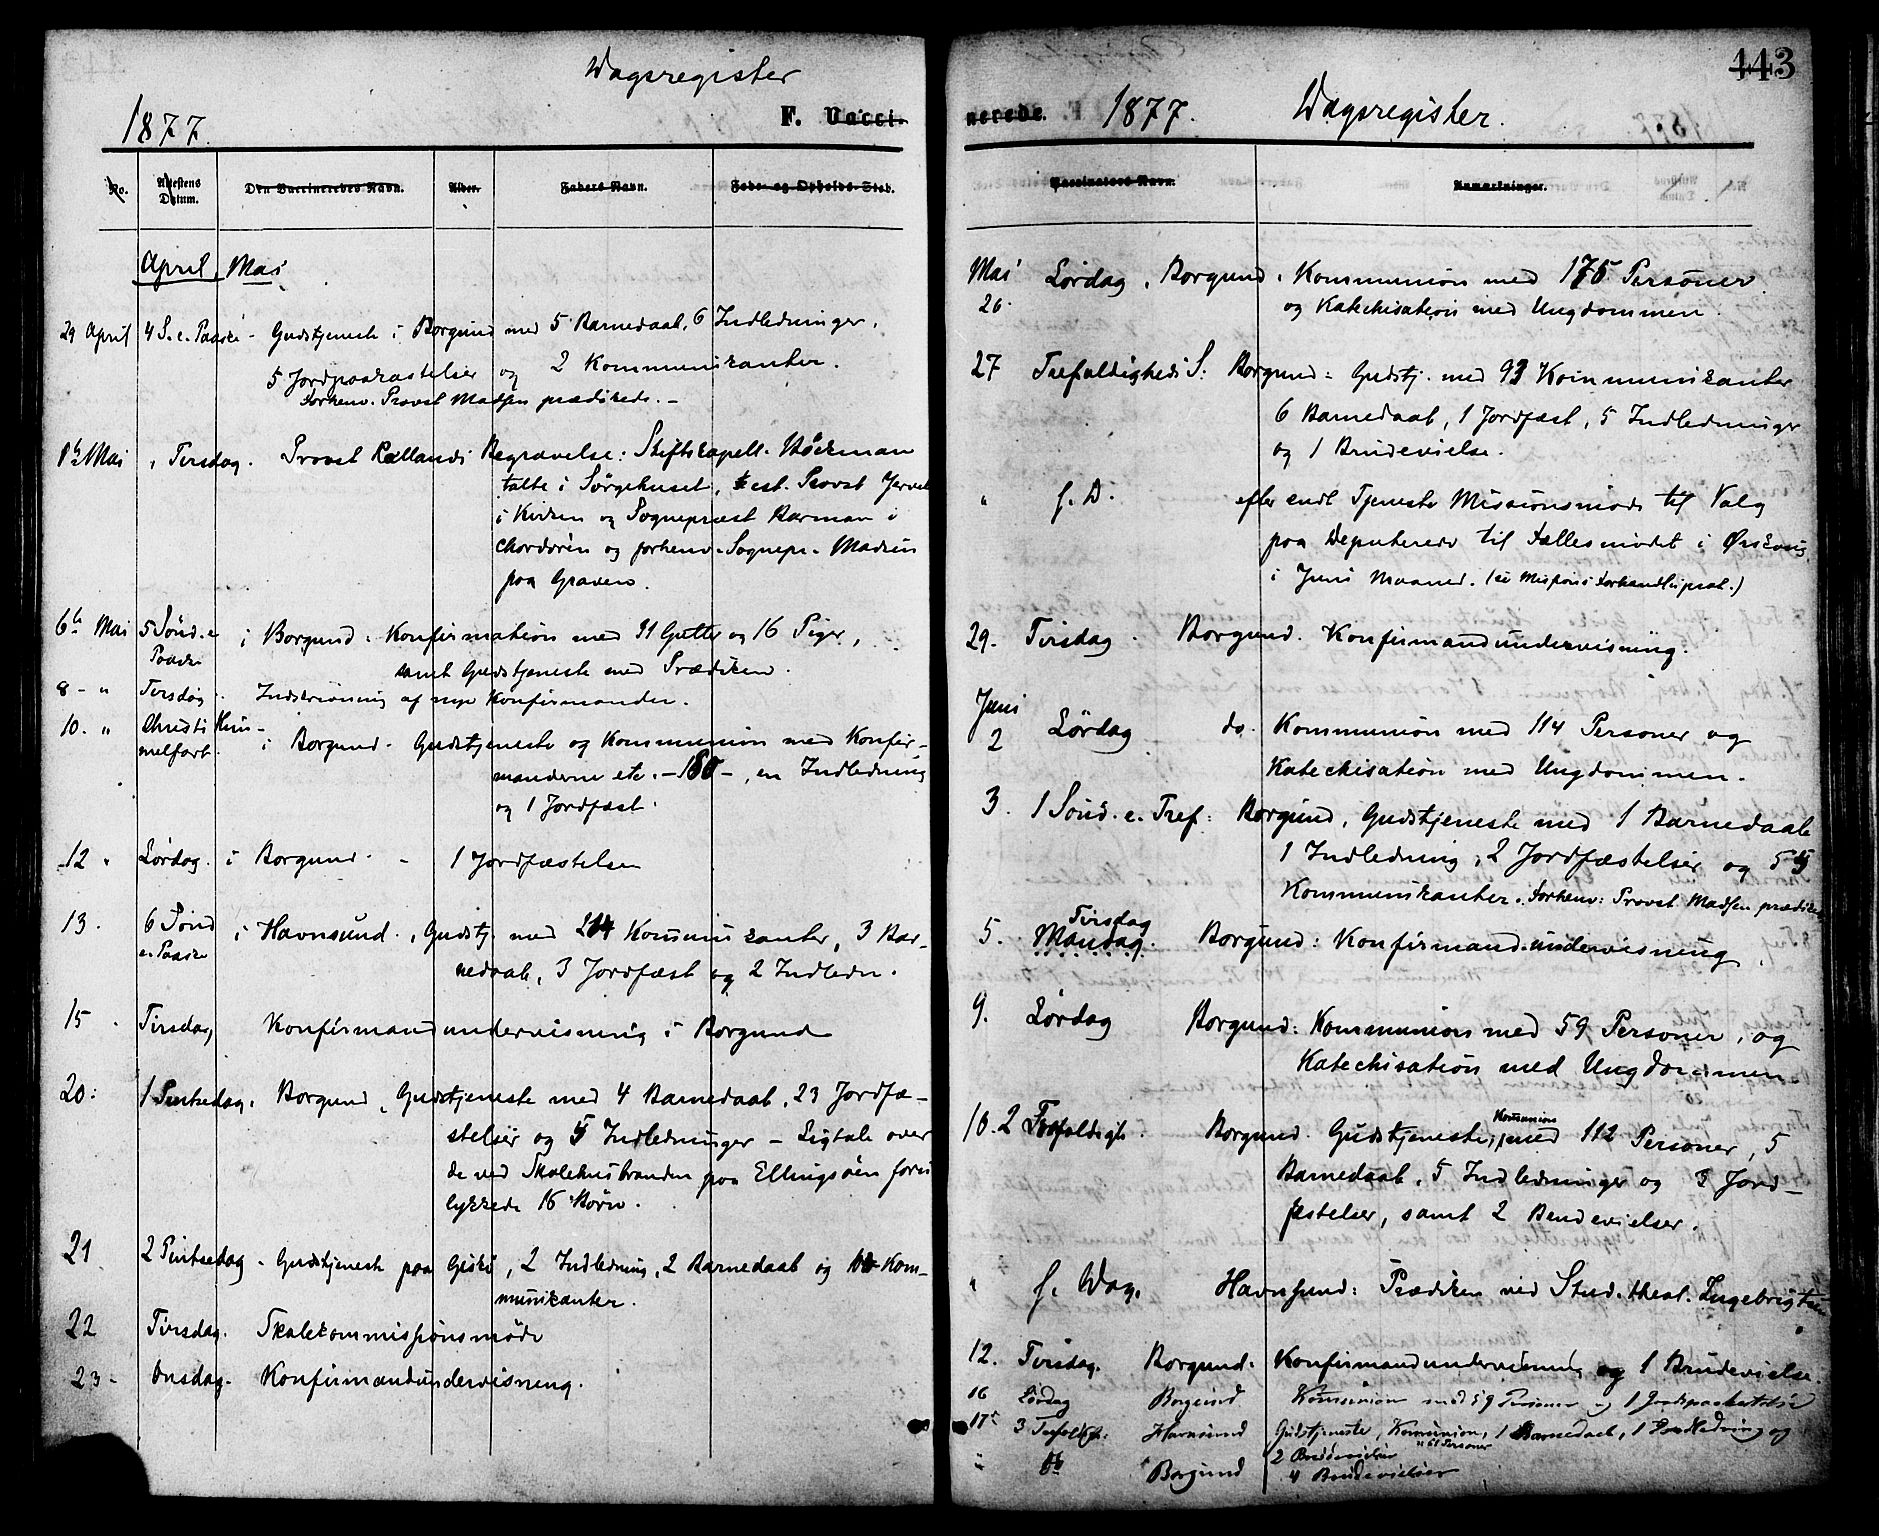 Dagsregister
1877.
F. Vacci-
No.
Attestens Datum.
Den Vaccineredes Navn.
Alder.
Faders Navn.
Føde- og Opholds-Sted.
April Mai
29 April 4 S. e. Paaske - Gudstjeneste i Borgund med 5 Barnedaab, 6 Indledninger,
5 Jordpaakastelser og 2 Kommunikanter.
Forhenv. Provst Madsen prædikede. -
Mai, Tirsdag. Provst Begravelse: Stiftskapell. Bøckman
talte i Sørgehuset, Provst
i Kirken og Sognepræst Barman i
Chordøren og forhenv. Sognepr. Madsen
paa Graven.
6te Mai 5 Sønd. e. Paaske i Borgund. Konfirmation med 31 Gutter og 16 Piger,
samt Gudstjeneste med Prædiken.
8 - " Tirsdag Indskrivning af nye Konfirmander.
10. " Christi Himmelfart. i Borgund. Gudstjeneste og Kommunion med Konfir-
manderne etc. - 180 -, en Indledning
og 1 Jordfæst.
12 " Lørdag. i Borgund. - 1 Jordfæstelse
13. 6 Sønd e. Paaske i Havnsund., Gudstj. med 214 Kommunikanter, 3 Bar-
nedaab, 3 Jordfæst og 2 Indledn.
15. Tirsdag Konfirmandundervisning i Borgund
20: 1 Pintsedag. Borgund, Gudstjeneste med 4 Barnedaab, 23 Jordfæ-
stelser og 5 Indledninger - Ligtale over
de ved Skolehusbranden paa Ellingsøen foru
lykkede 16 Børn.
21 2 Pintsedag - Gudstjeneste paa Giske, 2 Indledning, 2 Barnedaab og Kom-
munikanter.
22 Tirsdag. Skolekommissionsmøde
23 - Onsdag. Konfirmandundervisning.
443
nerede.
1877.
Dagsregister.
Vaccinators Navn.
Anmærkninger.
Mai 26. Lørdag, Borgund, Kommunion med 175 Personer
og Katechisation med Ungdommen.
27 Trefoldigheds S: Borgund: Gudstj. med 93 Kommunikanter
6 Barnedaab, 1 Jordfæst, 5 Indledninger
og 1 Brudevielse.
" f. D. efter endt Tjeneste Missionsmøde til Valg
paa Deputerede til Fællesmødet i Ørskoug
i Juni Maaned. (se Missions Forhandlsprot.)
29. Tirsdag. Borgund. Konfirmandundervisning.
Juni 2 Lørdag do. Kommunion med 114 Personer og
Katechisation med Ungdommen.
3. 1 Sønd. e. Tref: Borgund, Gudstjeneste med 1 Barnedaab
1 Indledning, 2 Jordfæstelser og 55
Kommunikanter. Forhenv: Provst Madsen prædiked
5. Tirsdag
Mandag. Borgund: Konfirmandundervisning
9. Lørdag Borgund: Kommunion med 59 Personer, og
Katechisation med Ungdommen.
10. 2 Trefoldigh. Borgund. Gudstjeneste, Kommunion med 112 Personer, 5
Barnedaab, 5 Indledninger og 3 Jord-
fæstelser, samt 2 Brudevielser.
" f. Dag. Havnsund: Prædiken ved Stud. theol. Ingebrigtsen
12. Tirsdag. Borgund: Konfirmandundervisning og 1 Brudevielse.
16 Lørdag Borgund Kommunion med 59 Personer og 1 Jordpaakastelse
17de 3 Trefoldigh. Havnsund Gudstjeneste, Kommunion, 1 Barnedaab, 1 Indledning og
" 61 Personer
2 Brudevielser
" Do Borgund 4 Brudevielser